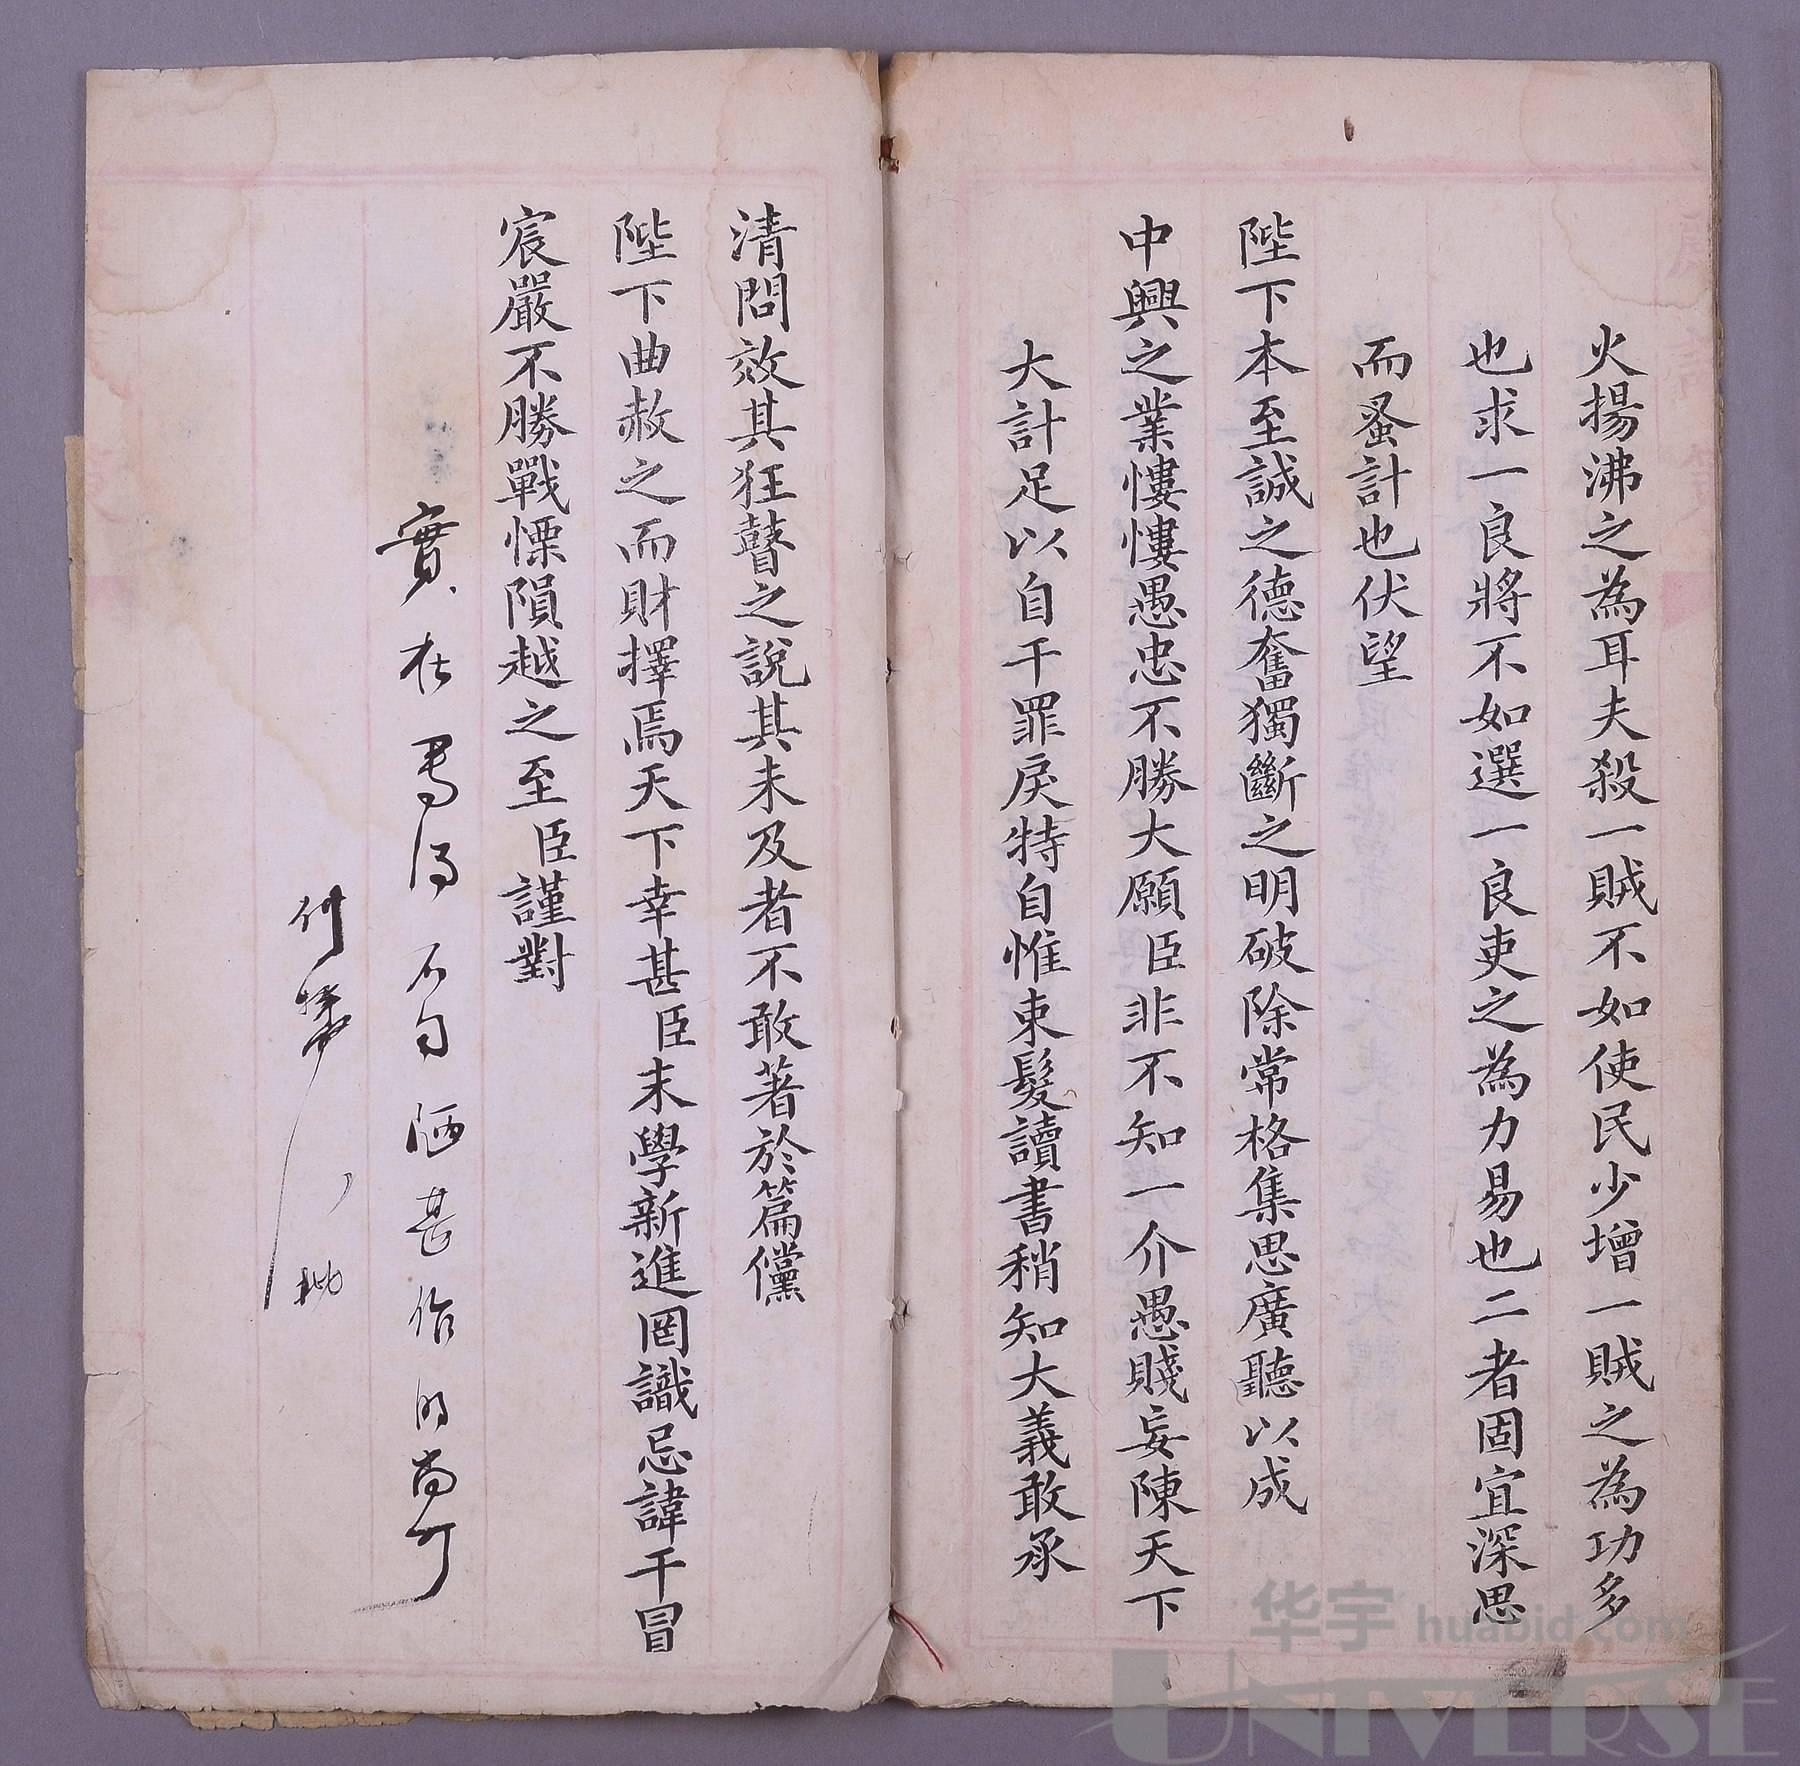 火揚沸之為耳夫殺一賊不如使民少增一賊之為功多
也求一良將不如選一良吏之為力易也二者固宜深思
而蚤計也伏望
陛下本至誠之德奮獨斷之明破除常格集思廣聽以成
中興之業慺慺愚忠不勝大願臣非不知一介愚賤妄陳天下
大計足以自干罪戾特自惟束髮讀書稍知大義敢承
清問效其狂瞽之說其未及者不敢著於篇儻
陛下曲赦之而財擇焉天下幸甚臣末學新進罔識忌諱干冒
宸嚴不勝戰慄隕越之至臣謹對
實在寫得不勻陋甚作的尚可
批
华宇 huabid.com
UNIVERSE